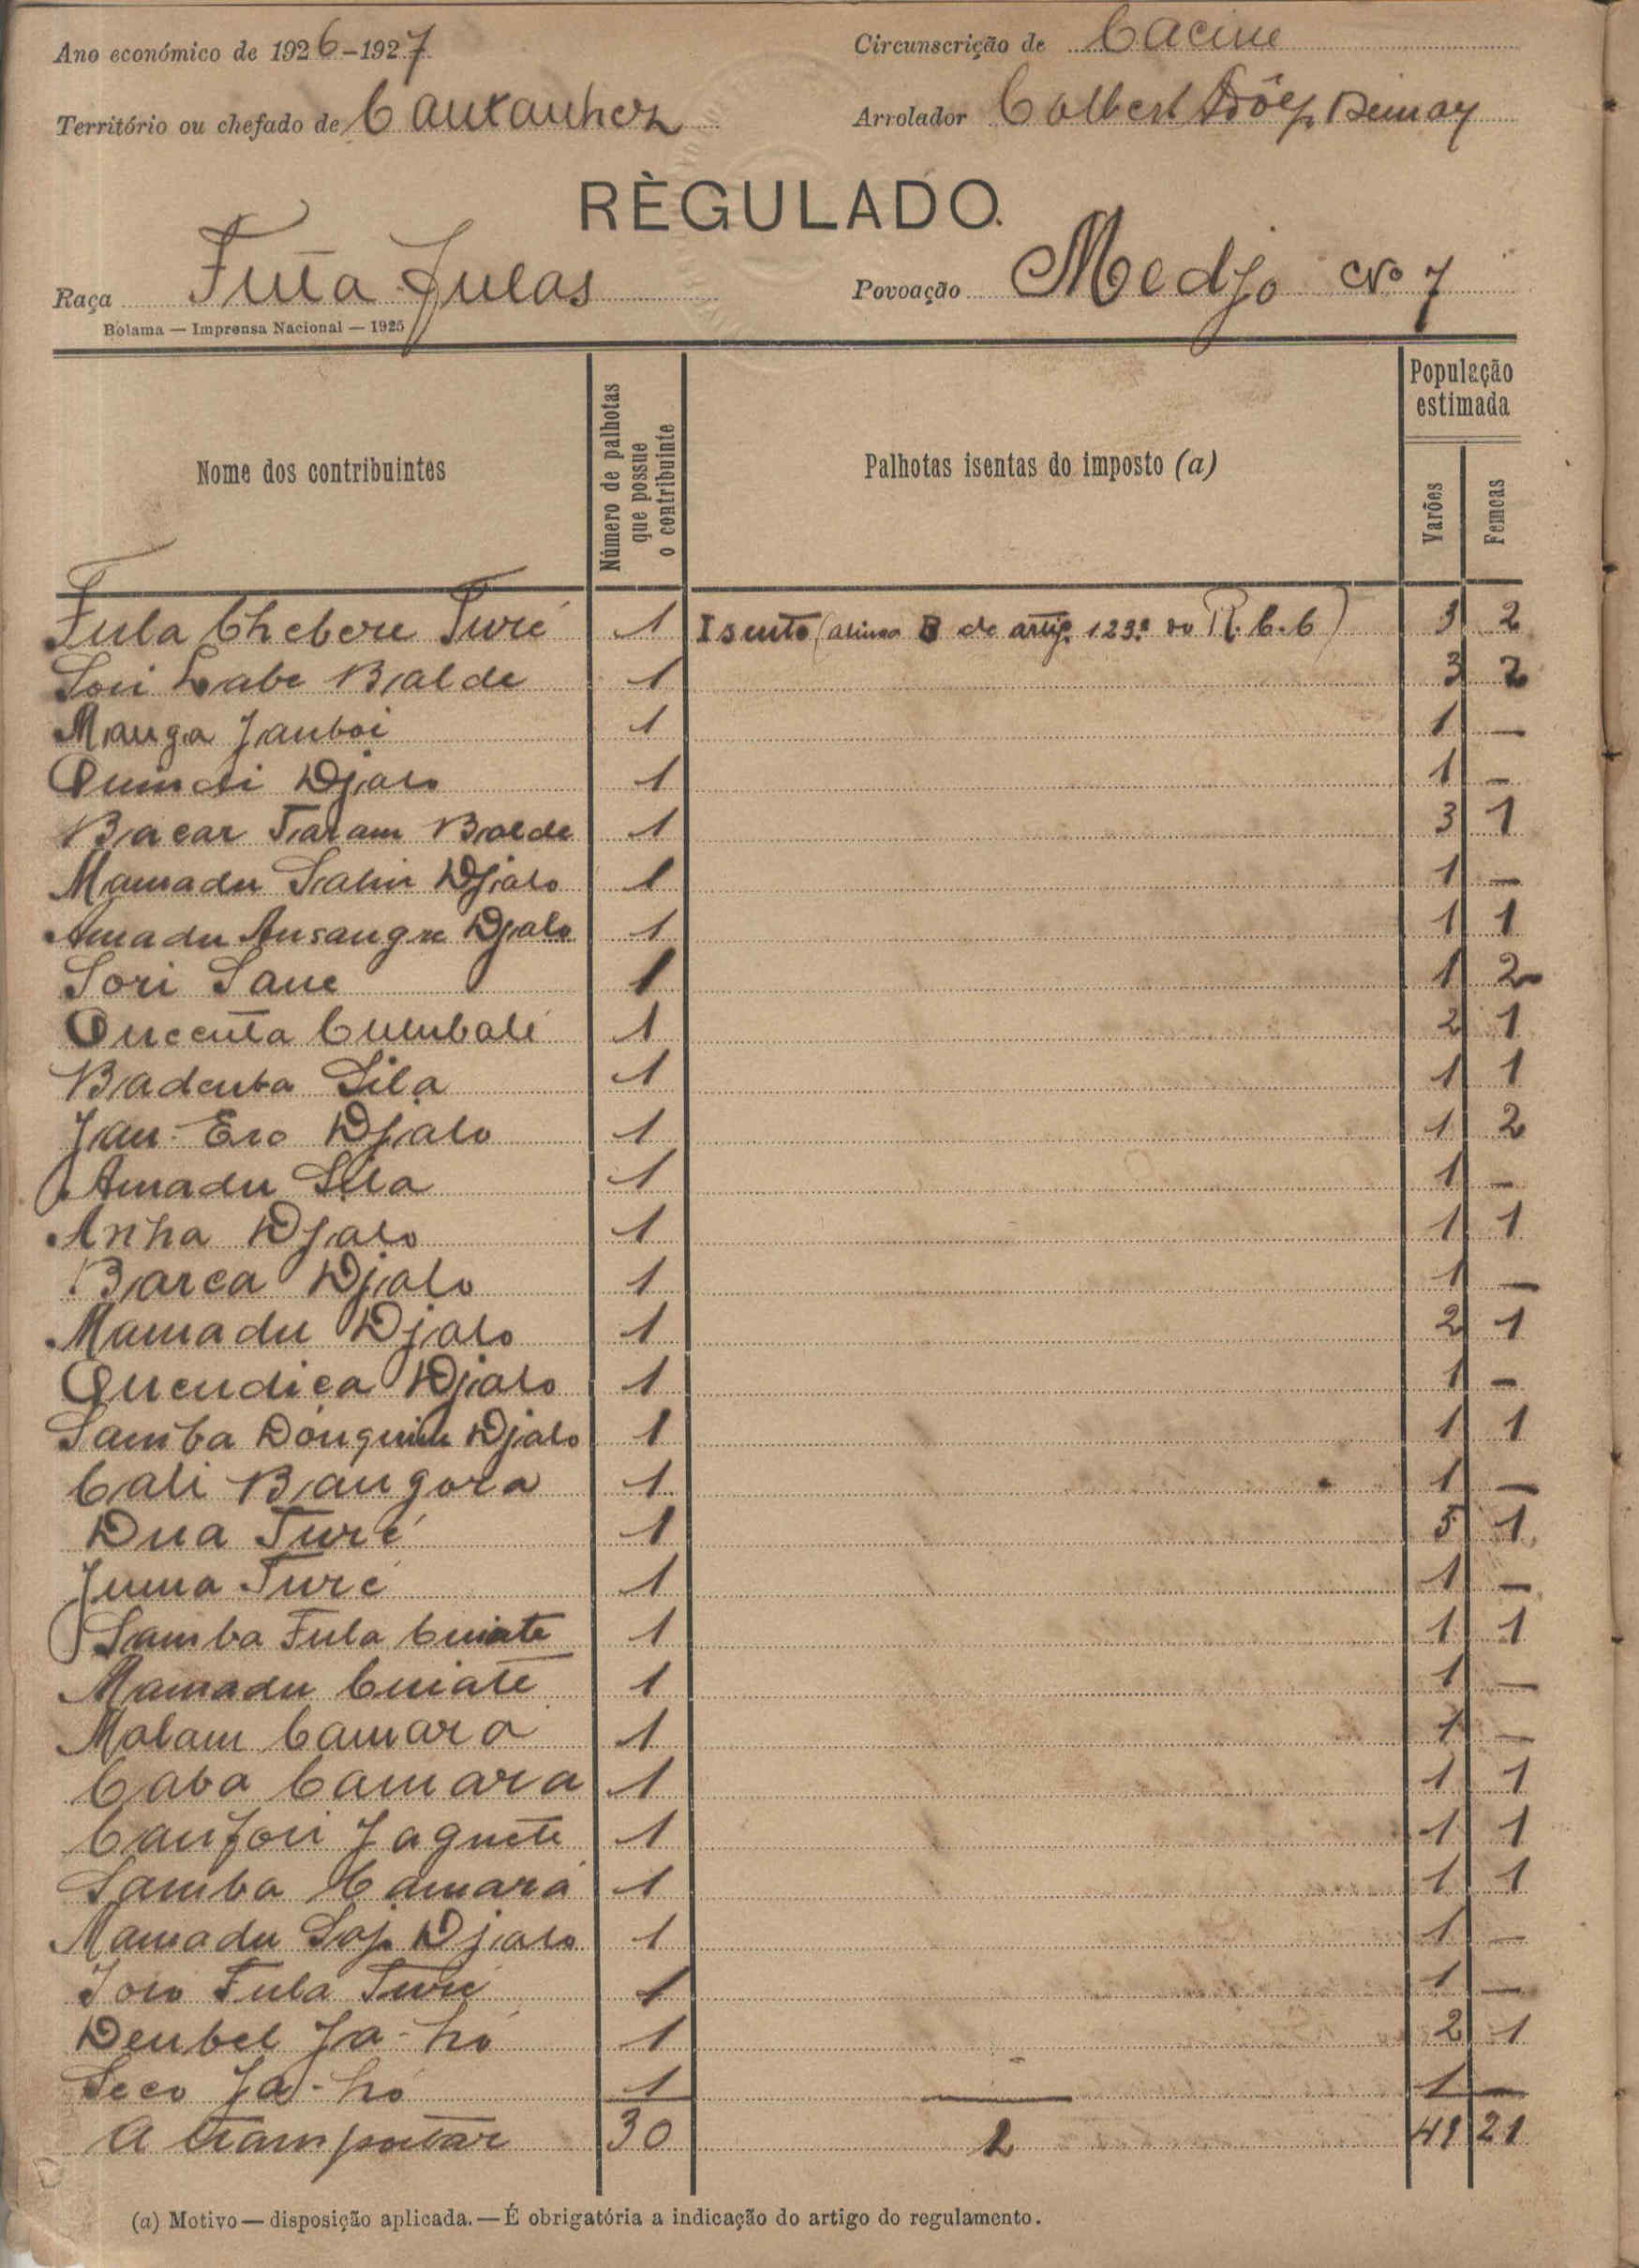 Ano económico de 1926-1927
Circunscrição de Cacine
Território ou chefado de Cantanhez
Arrolador Colbert
RÈGULADO.
Raça Futa Fulas
Povoação Medjo No 7
Bolama — Imprensa Nacional — 1925
Nome dos contribuintes
Número de palhotas que possue o contribuinte
Palhotas isentas do imposto (a)
População estimada
Varões
Femeas
Fula Chebere Turé 1 Isento (alinea B do artigo 123.º do R.C.C) 3 2
Sori Labe Balde 1 3 2
Manga Janboi 1 1 —
Quindi Djalo 1 1 —
Bacar Taram Balde 1 3 1
Mamadu Saliu Djalo 1 1 —
Amadu Ansangre Djalo 1 1 1
Sori Sane 1 1 2
Quecuta Culubali 1 2 1
Bademba Sila 1 1 1
Jau-Ero Djalo 1 1 2
Amadu Sila 1 1 —
Anha Djalo 1 1 1
Barca Djalo 1 1 —
Mamadu Djalo 1 2 1
Quendica Djalo 1 1 —
Samba Djalo 1 1 1
Cali Bangora 1 1 —
Dua Turé 1 5 1
Juma Turé 1 1 —
Samba Fula Cuiate 1 1 1
Mamadu Cuiate 1 1 —
Malam Camara 1 1 —
Caba Camara 1 1 1
Canfori Jaguete 1 1 1
Samba Camará 1 1 1
Mamadu Djalo 1 1 —
Fula Turé 1 1 —
Denbel Ja-hó 1 2 1
Seco Ja-hó 1 1 —
A transportar 30 1 41 21
(a) Motivo — disposição aplicada. — É obrigatória a indicação do artigo do regulamento.